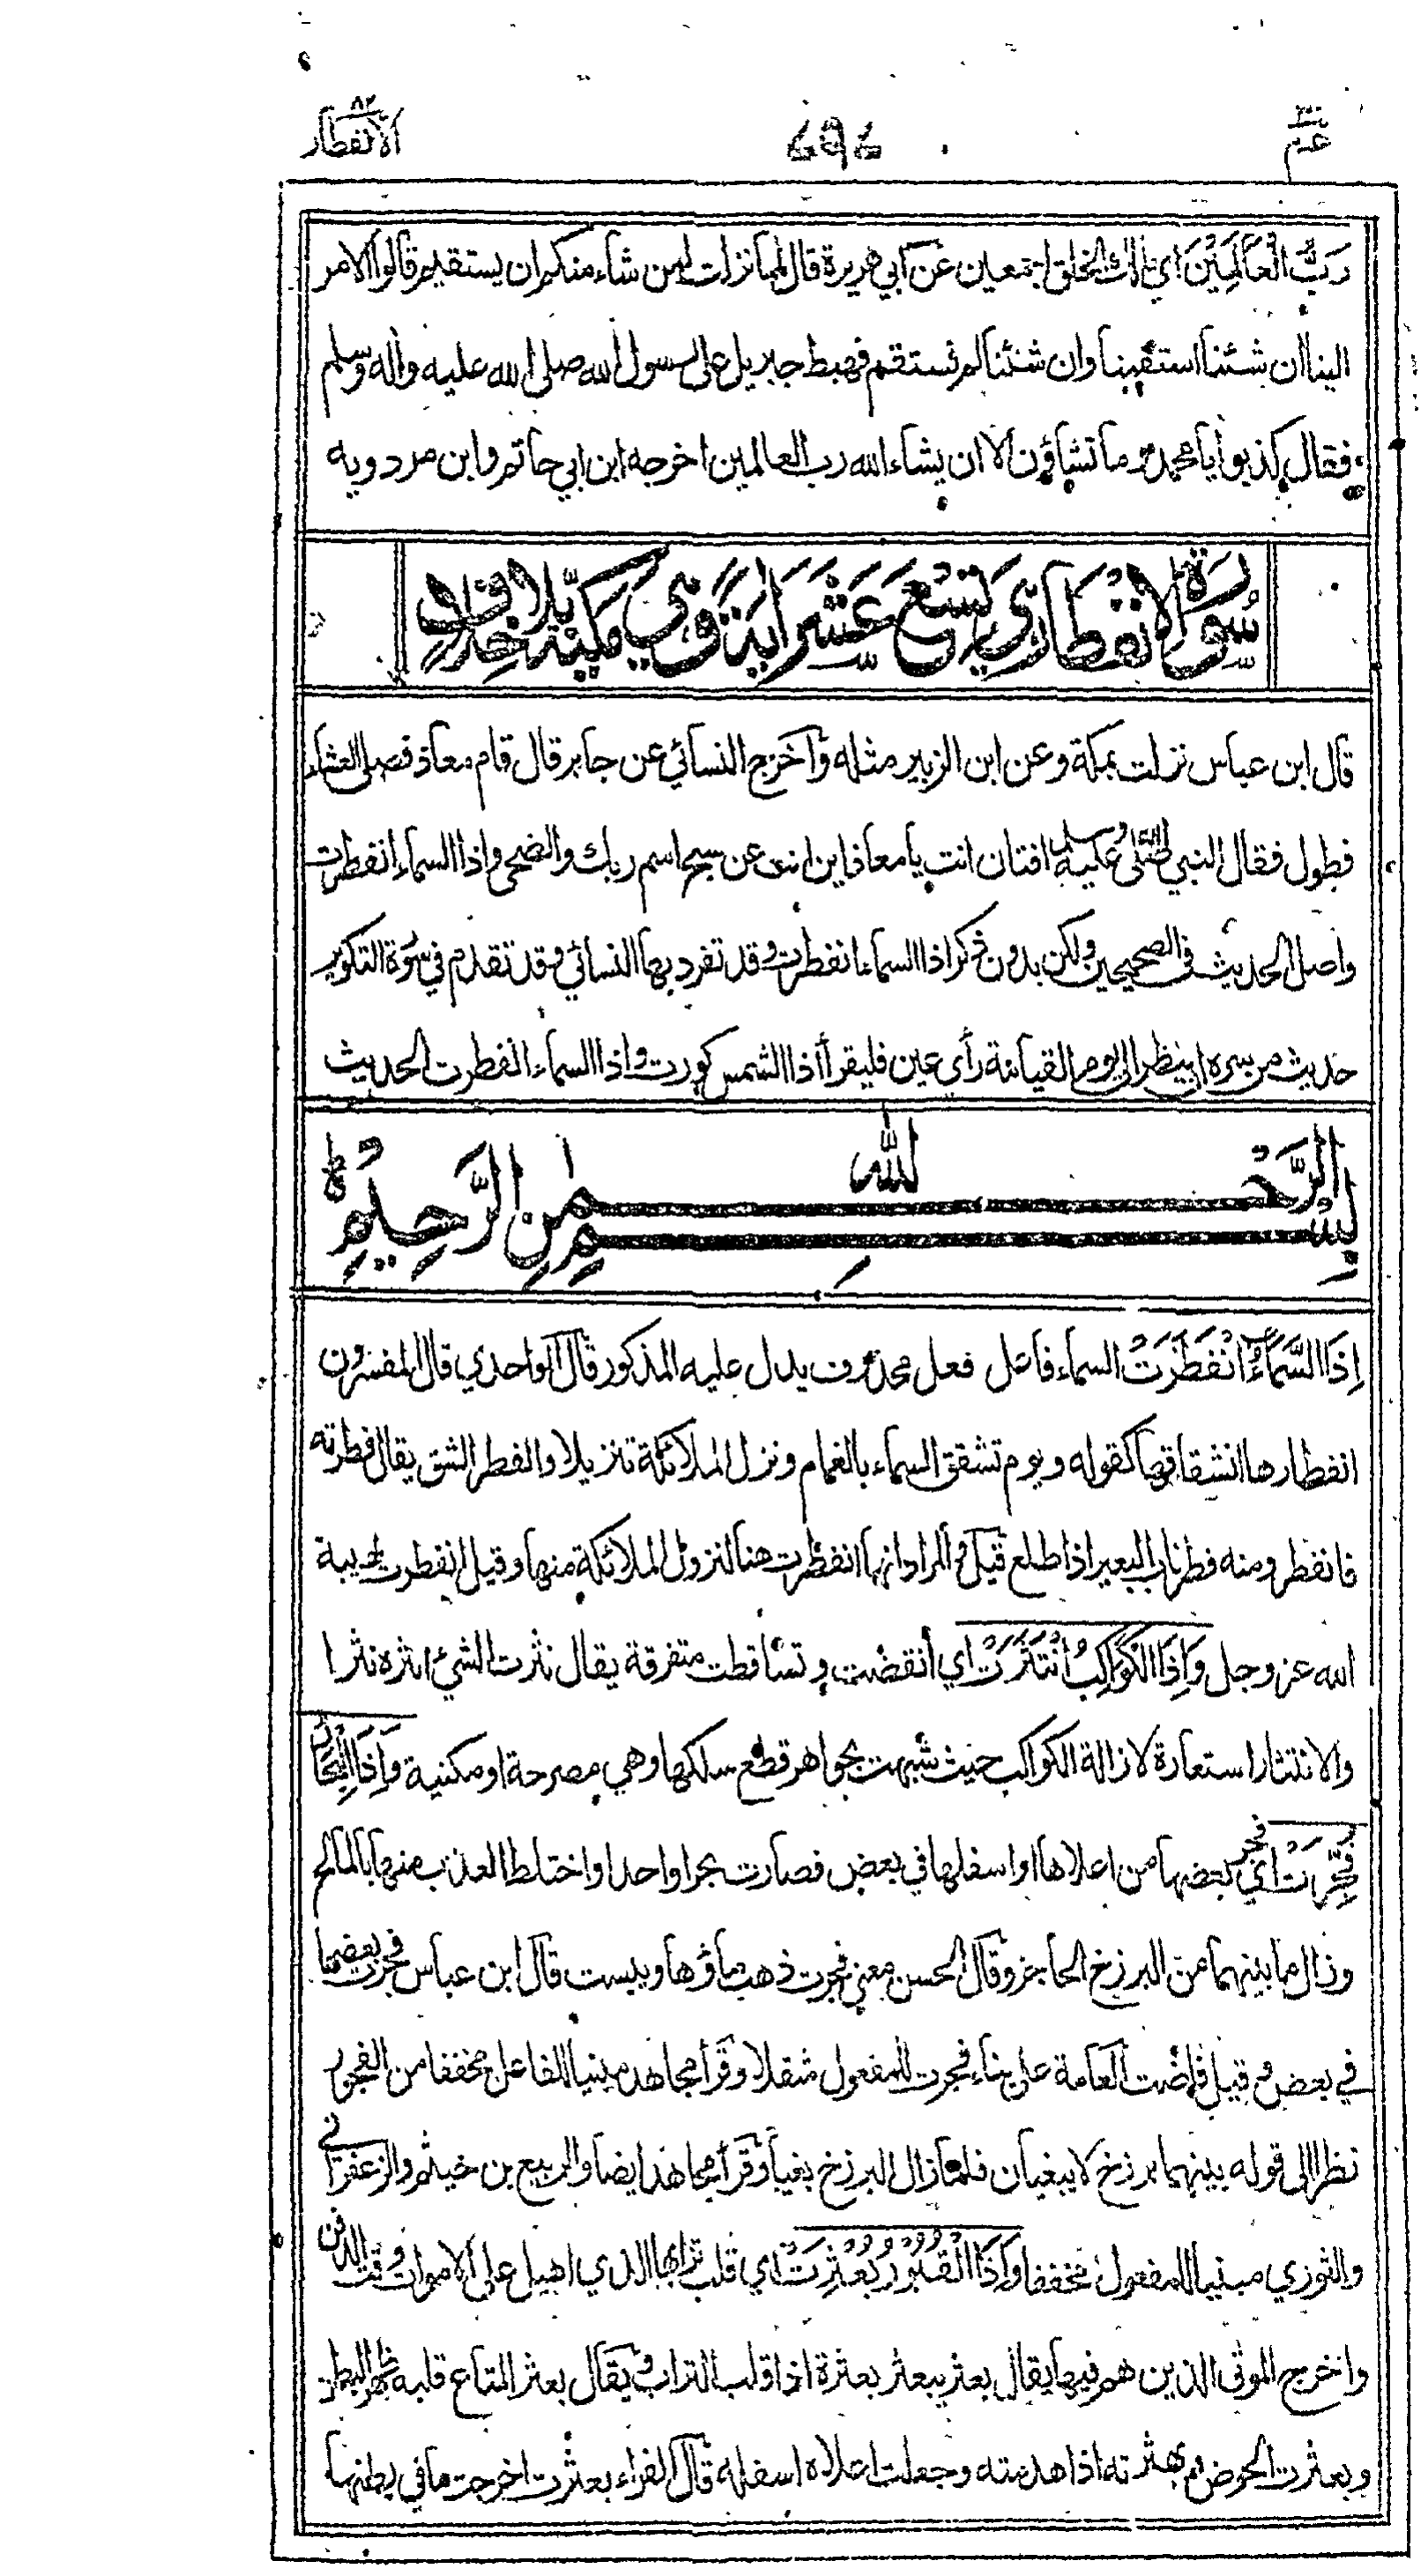 عم
الانفطار ٨٢
رَبُّ الْعَالَمِيْنَ اي مالك الخلق اجمعين عن ابي هريرة قال لما نزلت لمن شاء منكم ان يستقيم قالوا الامر
الينا ان شئنا استقمنا وان شئنا لم نستقم فهبط جبريل على رسول الله صلى الله عليه واٰله وسلم
فقال كذبوا يا محمد وما تشاؤن الا ان يشاء الله رب العالمين اخرجه ابن ابي حاتم وابن مردويه
سُوْرَةُ الانْفِطَارِ هِيَ تِسْعَ عَشَرَ اٰيَةً وَّهِيَ مَكِّيَّة بِلَا خِلَافٍ
قال ابن عباس نزلت بمكة وعن ابن الزبير مثله وأخرج النسائي عن جابر قال قام معاذ فصلى العشاء
فطول فقال النبي صلى الله عليه وسلم افتان انت يا معاذ اين انت عن سبح اسم ربك والضحى واذا السماء انفطرت
واصل الحديث في الصحيحين ولكن بدون ذكر اذا السماء انفطرت وقد تفرد بها النسائي وقد تقدم في سورة التكوير
حديث من سره ان ينظر الى يوم القيامة رأي عين فليقرأ اذا الشمس كورت واذا السماء انفطرت الحديث
بِسْمِ اللهِ الرَّحْمٰنِ الرَّحِيْمِ
اِذَا السَّمَآءُ انْفَطَرَتْ السماء فاعل فعل محذوف يدل عليه المذكور قال الواحدي قال المفسرون
انفطارها انشقاقها كقوله ويوم تشقق السماء بالغمام ونزل الملائكة تنزيلا والفطر الشق يقال فطرته
فانفطر ومنه فطر ناب البعير اذا طلع قيل والمراد انها انفطرت هنا لنزول الملائكة منها وقيل انفطرت لهيبة
الله عز وجل وَاِذَا الْكَوَاكِبُ انْتَثَرَتْ اي انقضت وتساقطت متفرقة يقال نثرت الشئ انثره نثرا
والانتثار استعارة لازالة الكواكب حيث شبهت بجواهر قطع سلكها وهي مصرحة او مكنية وَاِذَا الْبِحَارُ
فُجِّرَتْ اي فجر بعضها من اعلاها او اسفلها في بعض فصارت بحرا واحدا واختلط العذب منها بالمالح
وزال ما بينهما من البرزخ الحاجز وقال الحسن معنى فجرت ذهب ماؤها ويبست قال ابن عباس فجرت بعضها
في بعض وقيل فاضت العامة على بناء فجرت للمفعول مثقلا وقرأ مجاهد مبنيا للفاعل مخففا من الفجور
نظرا الى قوله بينهما برزخ لا يبغيان فلما زال البرزخ بغيا وقرأ مجاهد ايضا والربيع بن خيثم والزعفراني
والثوري مبنيا للمفعول مخففا وَاِذَا الْقُبُوْرُ بُعْثِرَتْ اي قلب ترابها الذي اهيل على الاموات وقت الدفن
واخرج الموتى الذين هم فيها يقال بعثر يبعثر بعثرة اذا قلب التراب ويقال بعثر المتاع قلبه ظهر البطن
وبعثرت الحوض وبحثرته اذا هدمته وجعلت اعلاه اسفله قال الفراء بعثرت اخرجت ما في بطنها